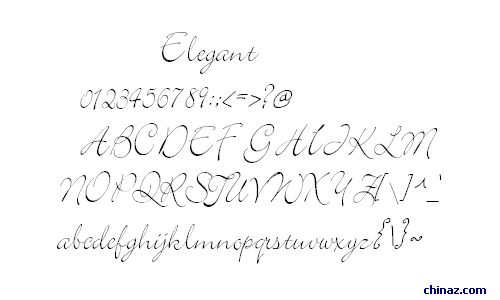 Elegant
0123456789:;<=>?@
ABCDEFGHIJKLM
NOPQRSTUVWXYZ[\]^_`
abcdefghijklmnopqrstuvwxyz{\}~
chinaz.com